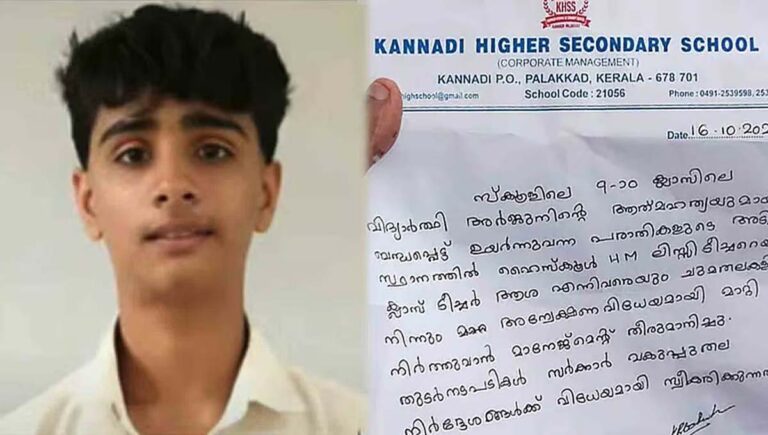 KHSS
KANNADI HIGHER SECONDARY SCHOOL
(CORPORATE MANAGEMENT)
KANNADI P.O., PALAKKAD, KERALA - 678 701
highschool@gmail.com School Code : 21056 Phone : 0491-2539598, 253
Date 16.10.202
സ്കൂളിലെ 9-ാം ക്ലാസിലെ
വിദ്യാർത്ഥി അർജുനിന്റെ ആത്മഹത്യയുമായ
ബന്ധപ്പെട്ട് ഉയർന്നുവന്ന പരാതികളുടെ അടി
സ്ഥാനത്തിൽ ഹൈസ്കൂൾ HM ലിസ്സി ടീച്ചറെയ
ക്ലാസ് ടീച്ചർ ആശ എന്നിവരെയും ചുമതലകള
നിന്നും അന്വേഷണ വിധേയമായി മാറ്റി
നിർത്തുവാൻ മാനേജ്മെന്റ് തീരുമാനിച്ചു.
തുടർനടപടികൾ സർക്കാർ വകുപ്പുതല
നിർദ്ദേശങ്ങൾക്ക് വിധേയമായി സ്വീകരിക്കുന്ന